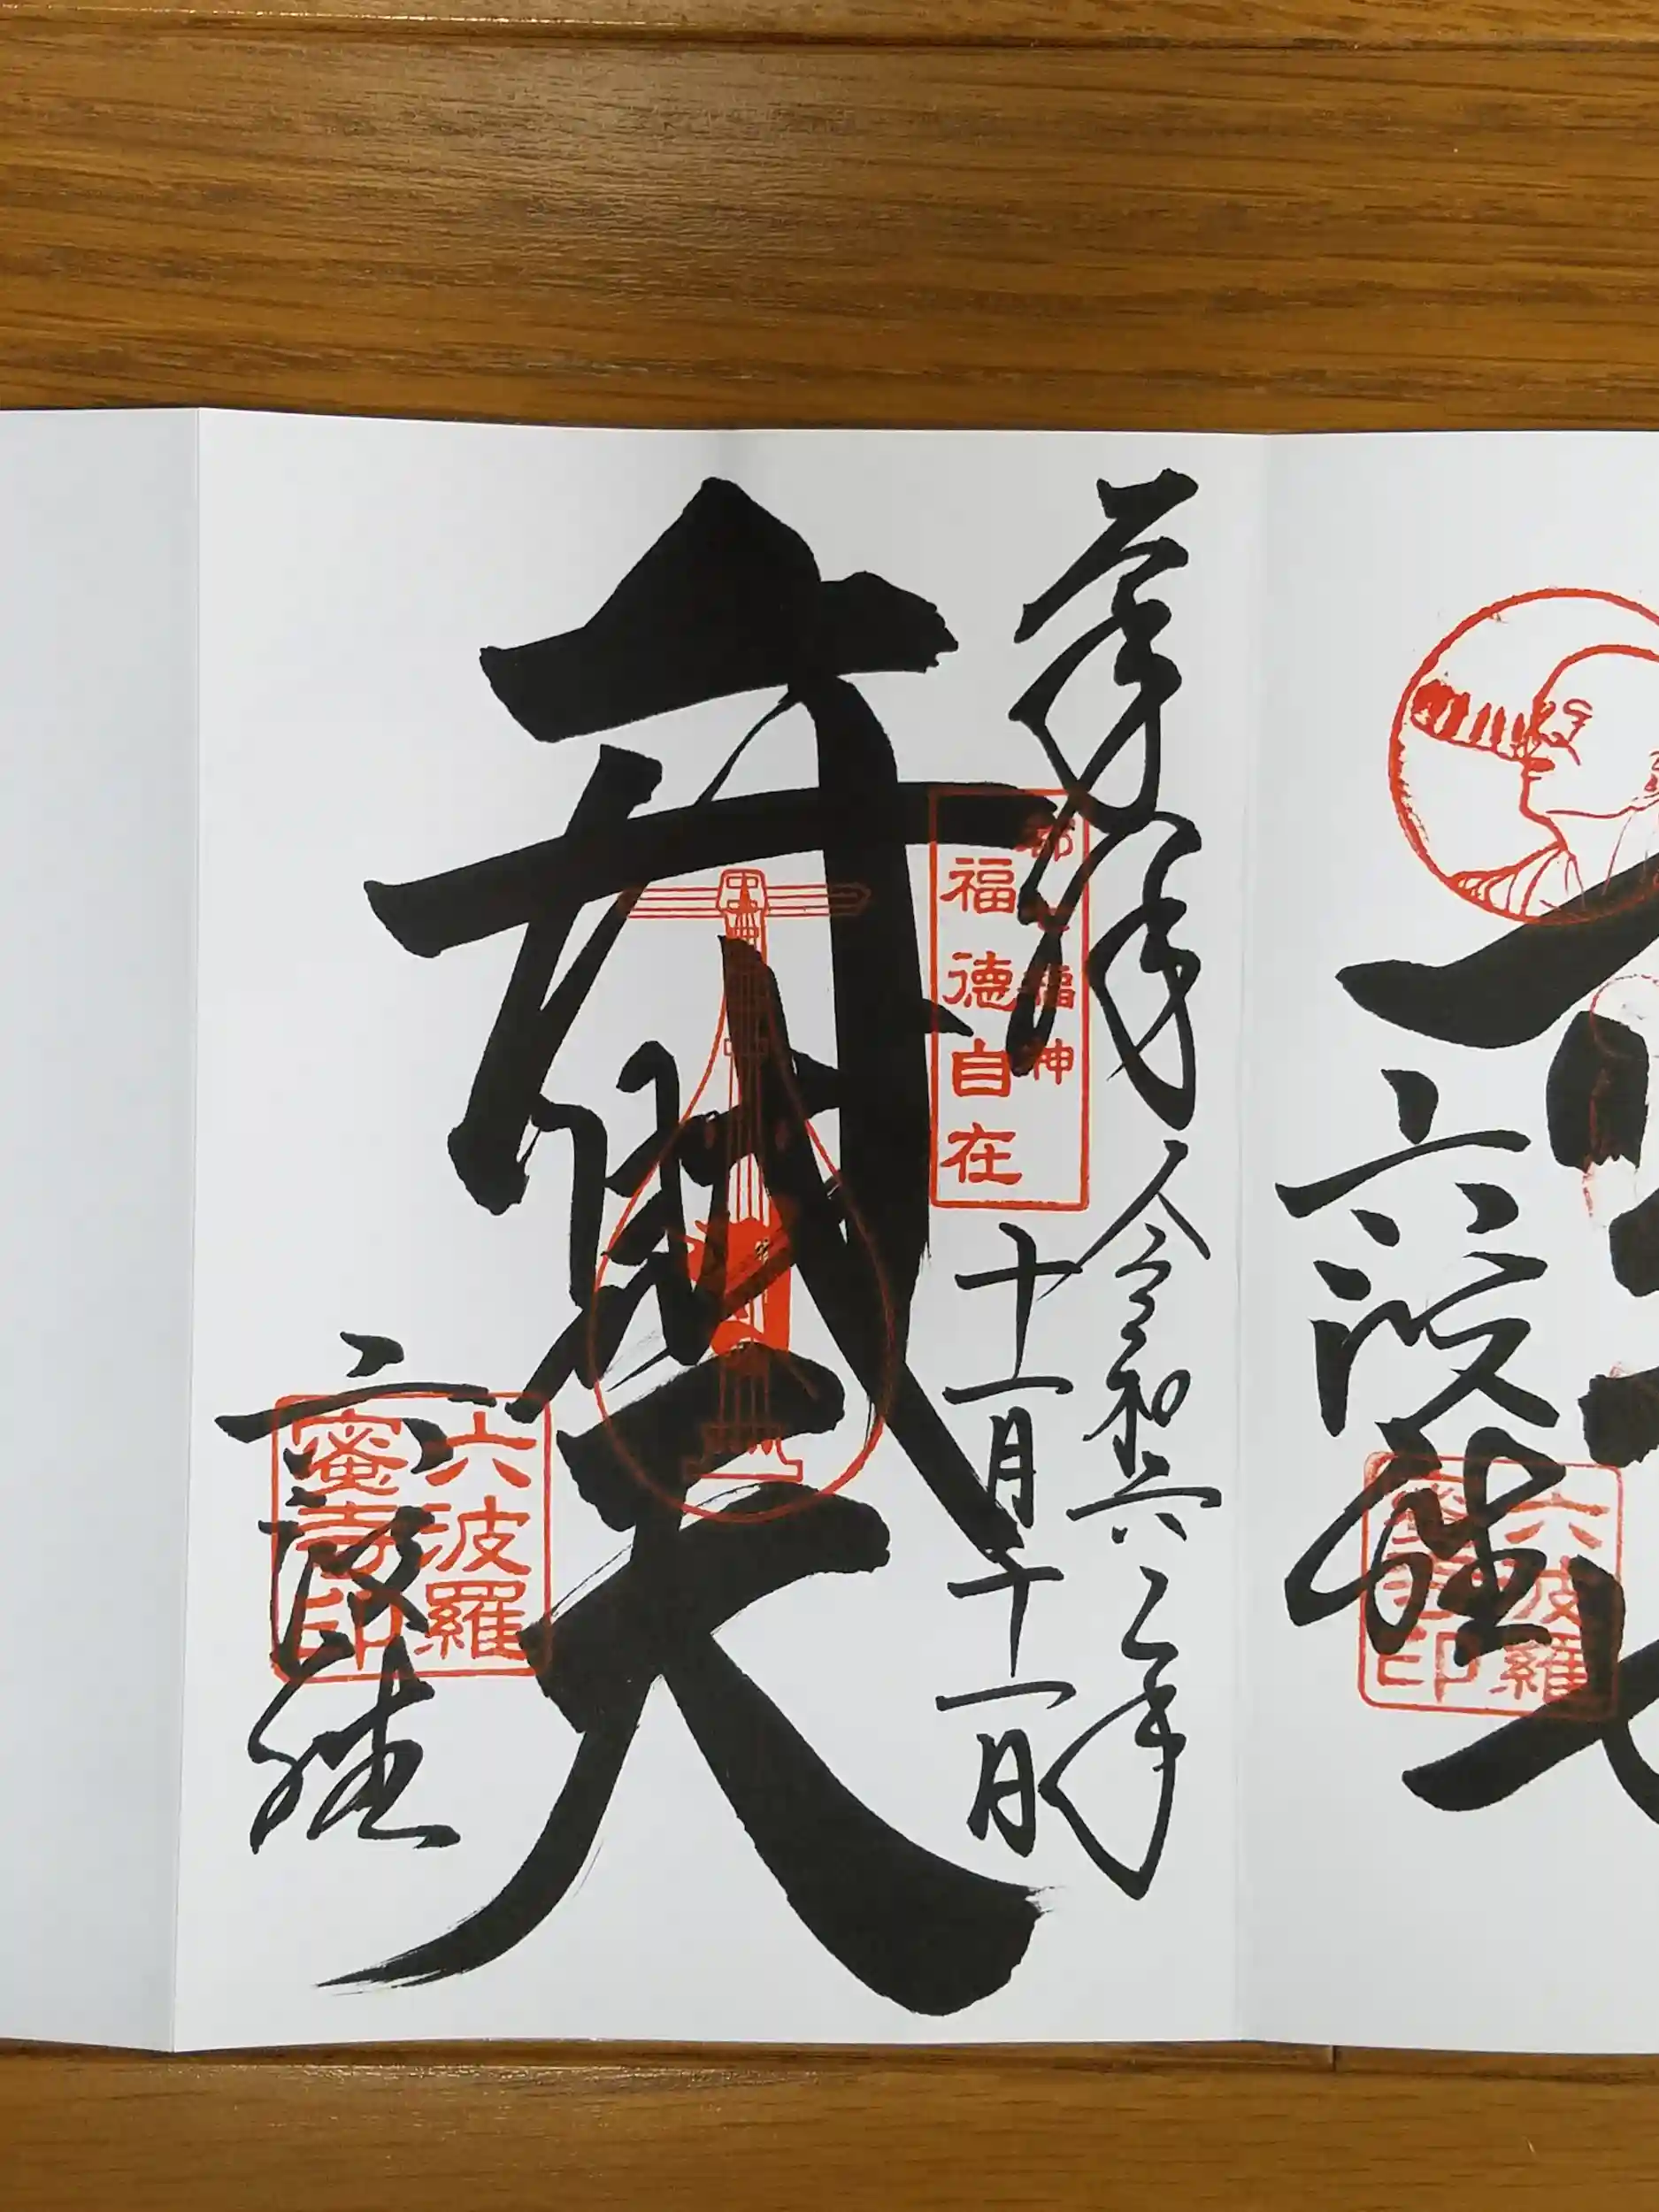 奉拝
令和六年
十一月十一日
都七福神
福徳自在
弁財天
六波羅
蜜寺印
六波
六波
六波羅
蜜寺印